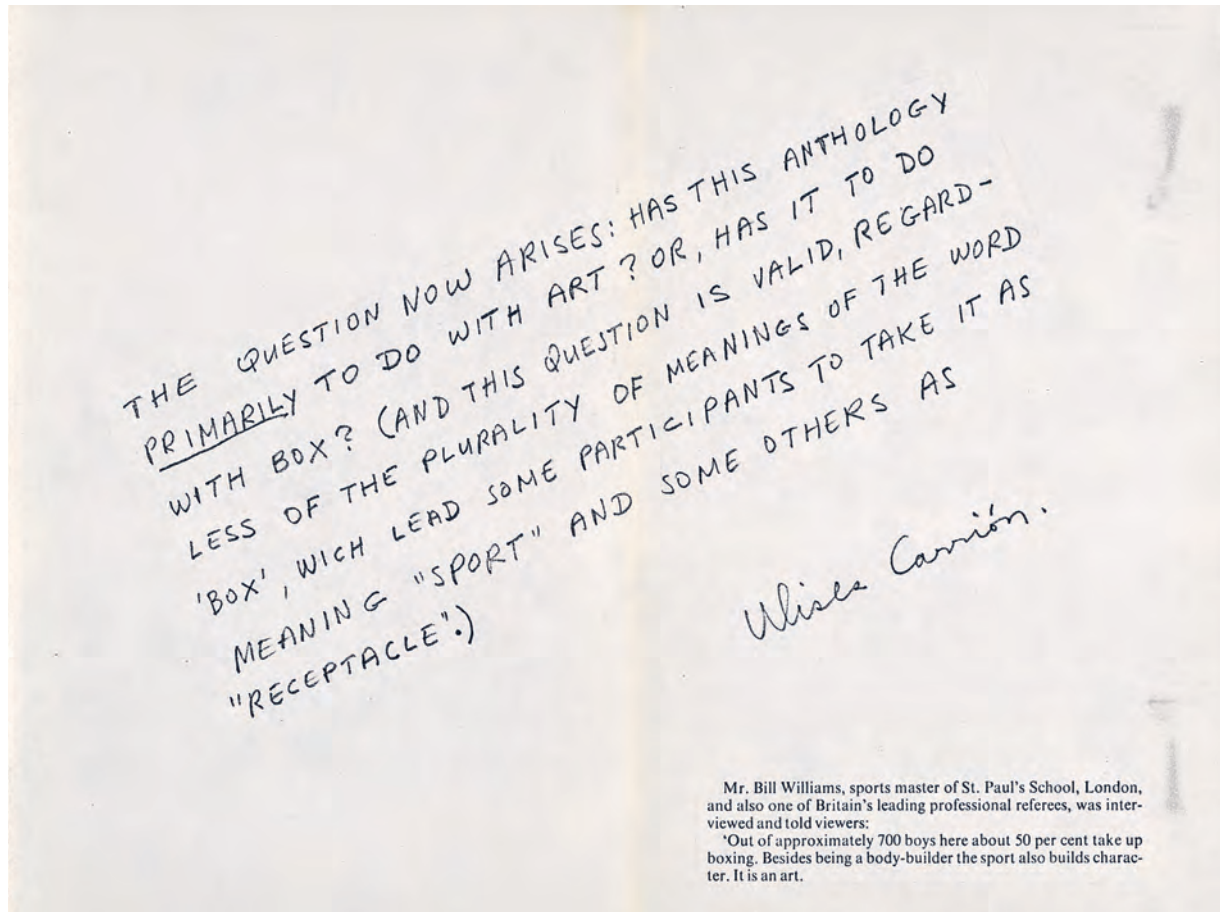 THE QUESTION NOW ARISES: HAS THIS ANTHOLOGY
PRIMARILY TO DO WITH ART? OR, HAS IT TO DO
WITH BOX? (AND THIS QUESTION IS VALID, REGARD-
LESS OF THE PLURALITY OF MEANINGS OF THE WORD
'BOX', WICH LEAD SOME PARTICIPANTS TO TAKE IT AS
MEANING "SPORT" AND SOME OTHERS AS
"RECEPTACLE".)
Ulises Carrión.
Mr. Bill Williams, sports master of St. Paul's School, London,
and also one of Britain's leading professional referees, was inter-
viewed and told viewers:
'Out of approximately 700 boys here about 50 per cent take up
boxing. Besides being a body-builder the sport also builds charac-
ter. It is an art.